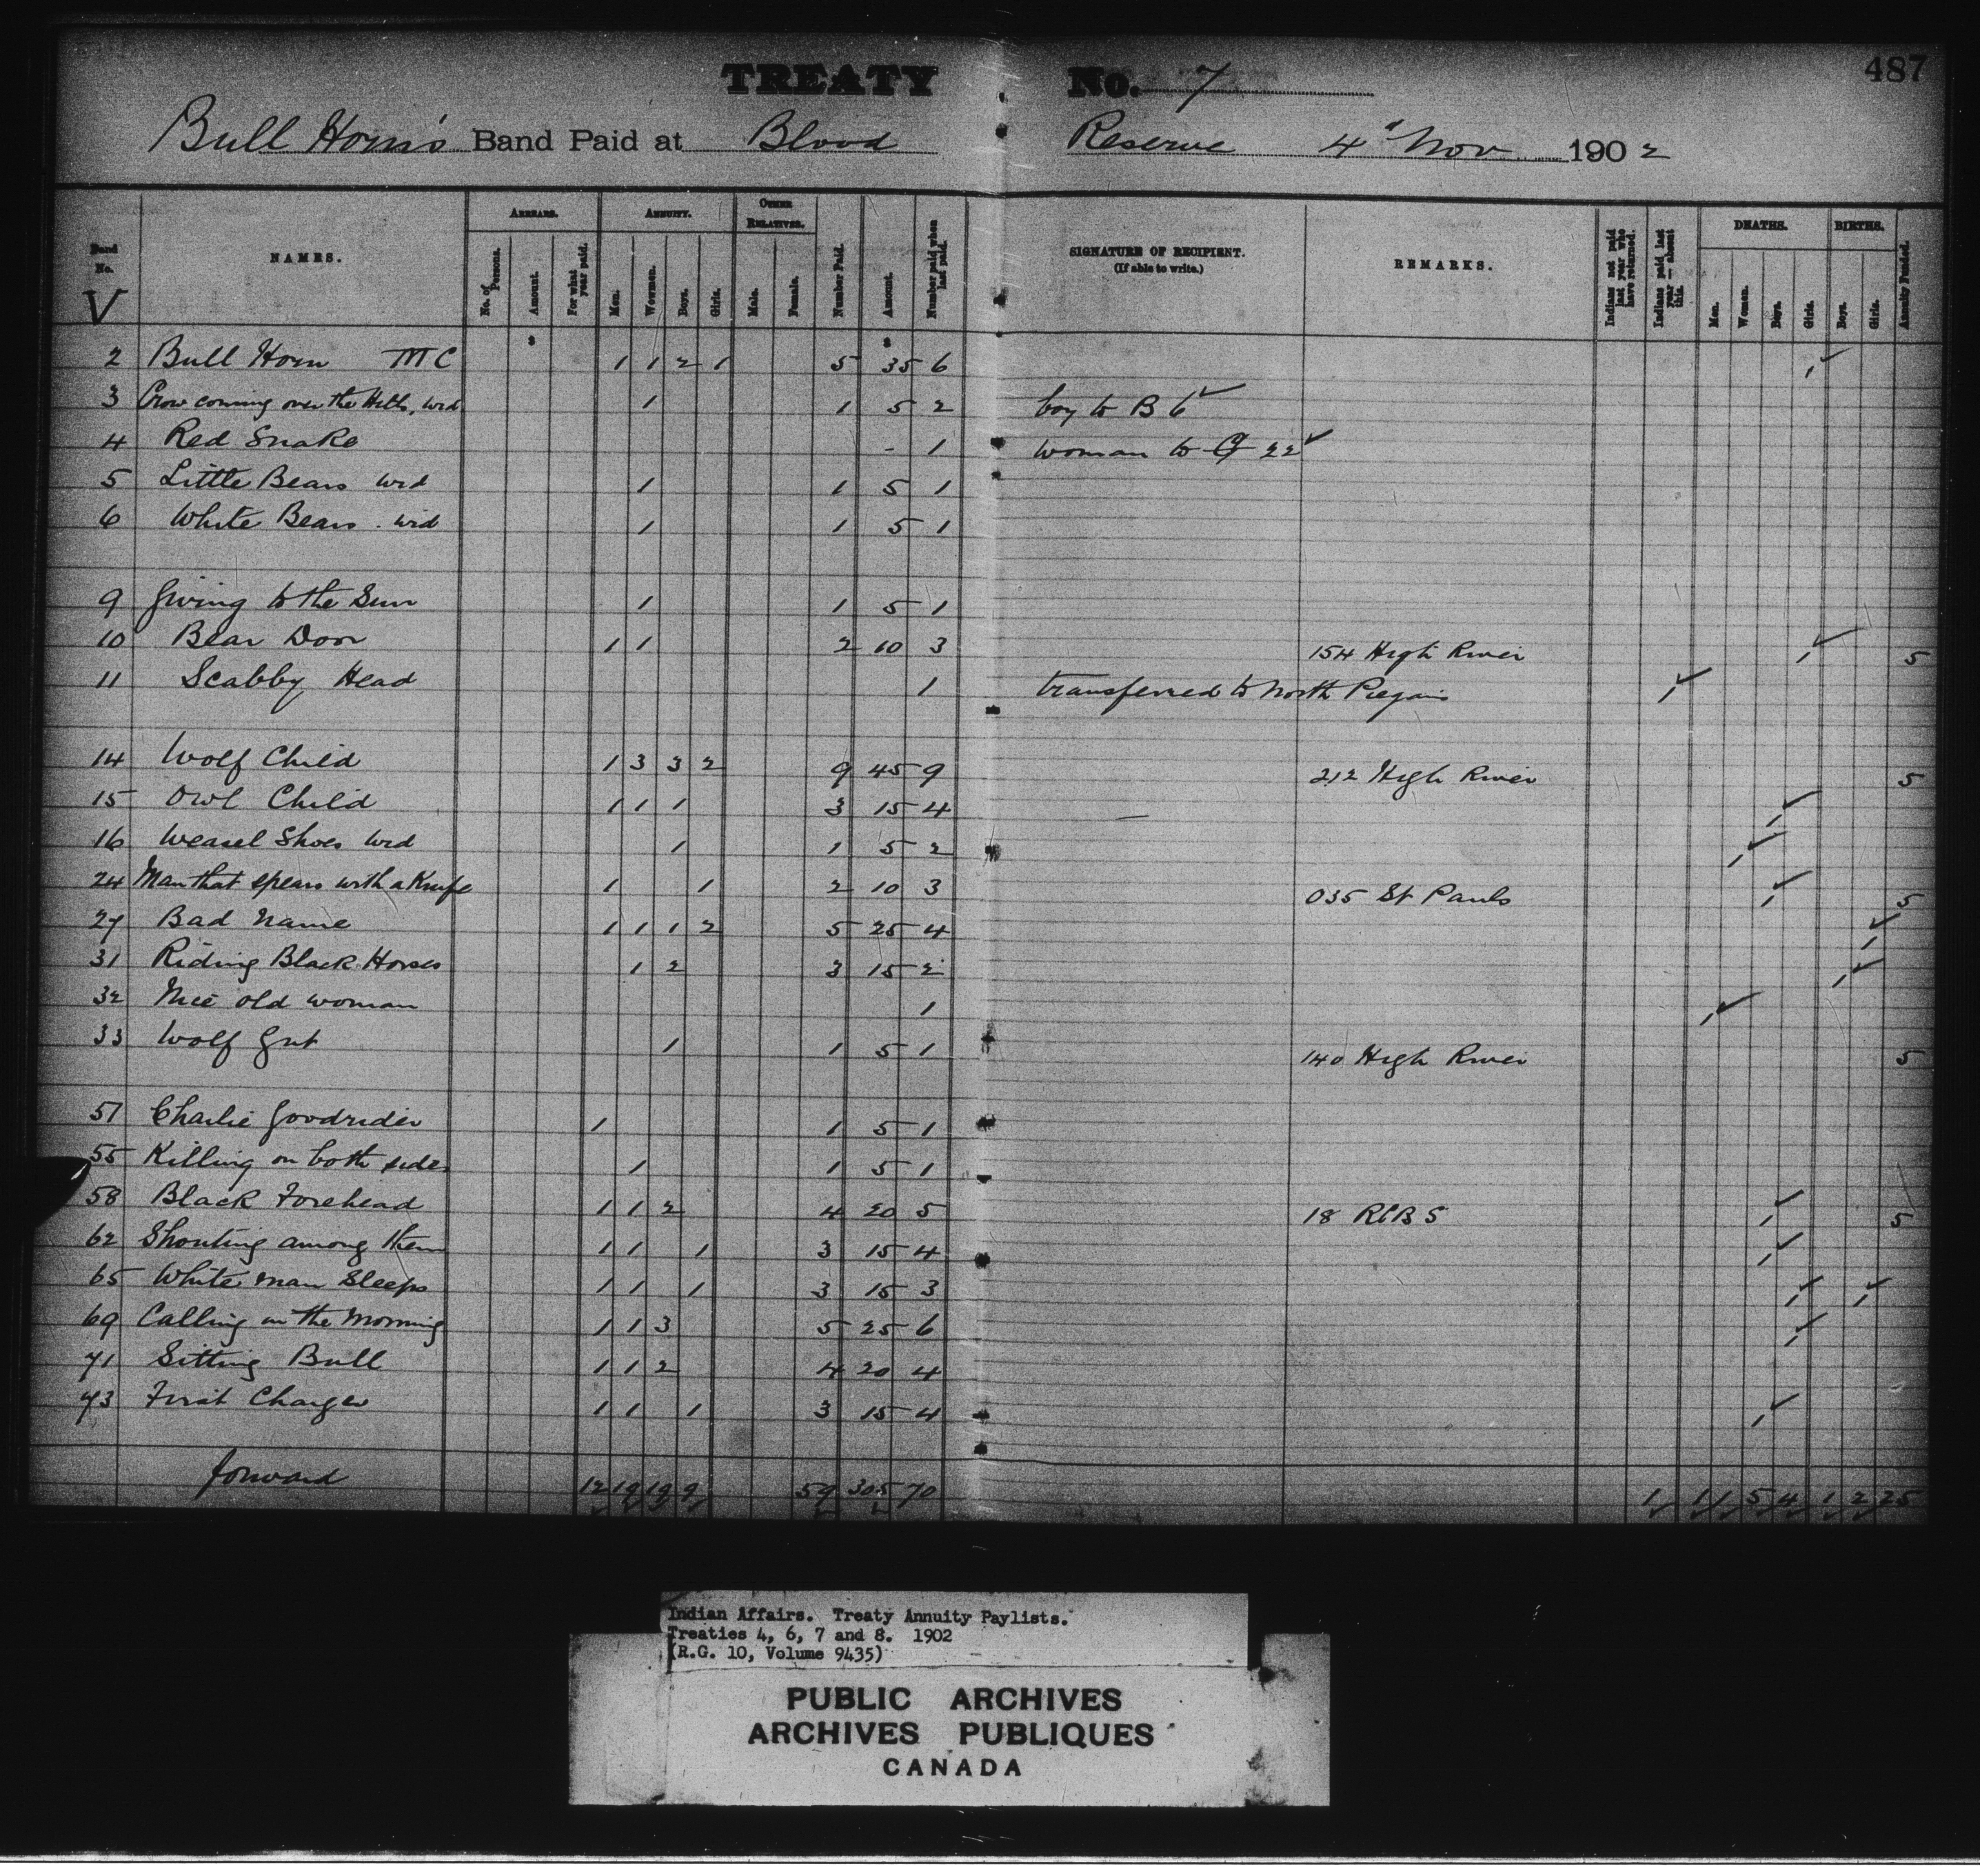 487
TREATY No. 7
Bull Horn's Band Paid at Blood Reserve 4" Nov 1902
Band No. NAMES. ARREARS. ANNUITY. OTHER RELATIVES. Number Paid. Amount. Number paid when last paid. SIGNATURE OF RECIPIENT. (If able to write.) REMARKS. Indians not paid last year who have returned. Indians paid last year—absent this. DEATHS. BIRTHS. Annuity Funded.
No. of Persons. Amount. For what year paid. Men. Women. Boys. Girls. Male. Female. Men. Women. Boys. Girls. Boys. Girls.
V
$ $
2 Bull Horn MC 1 1 2 1 5 35 6 1 ✓
3 Crow coming over the Hills, wid 1 1 5 2 boy to B 6 ✓
4 Red Snake - 1 woman to 22 ✓
5 Little Bears wid 1 1 5 1
6 White Bears. wid 1 1 5 1
9 Giving to the Sun 1 1 5 1
10 Bear Door 1 1 2 10 3 154 High River 1 ✓ 5
11 Scabby Head 1 transferred to North Piegans 1 ✓
14 Wolf Child 1 3 3 2 9 45 9 212 High River 5
15 Owl Child 1 1 1 3 15 4 — 1 ✓
16 Weasel Shoes wid 1 1 5 2 1 ✓
24 Man that spears with a Knife 1 1 2 10 3 035 St Pauls 1 ✓ 5
27 Bad Name 1 1 1 2 5 25 4 1 ✓
31 Riding Black Horses 1 2 3 15 2 1 ✓
32 Nice old woman 1 1 ✓
33 Wolf Gut 1 1 5 1 140 High River 5
51 Charlie Goodrider 1 1 5 1
55 Killing on both sides 1 1 5 1
58 Black Forehead 1 1 2 4 20 5 18 RCBS 1 ✓ 5
62 Shouting among them 1 1 1 3 15 4 1 ✓
65 White man Sleeps 1 1 1 3 15 3 1 ✓ 1 ✓
69 Calling in the Morning 1 1 3 5 25 6 1 ✓
71 Sitting Bull 1 1 2 4 20 4
73 First Charger 1 1 1 3 15 4 1 ✓
forward 12 19 19 9 59 305 70 1 1 1 5 4 1 2 25
Indian Affairs. Treaty Annuity Paylists.
Treaties 4, 6, 7 and 8. 1902
(R.G. 10, Volume 9435)
PUBLIC ARCHIVES
ARCHIVES PUBLIQUES
CANADA